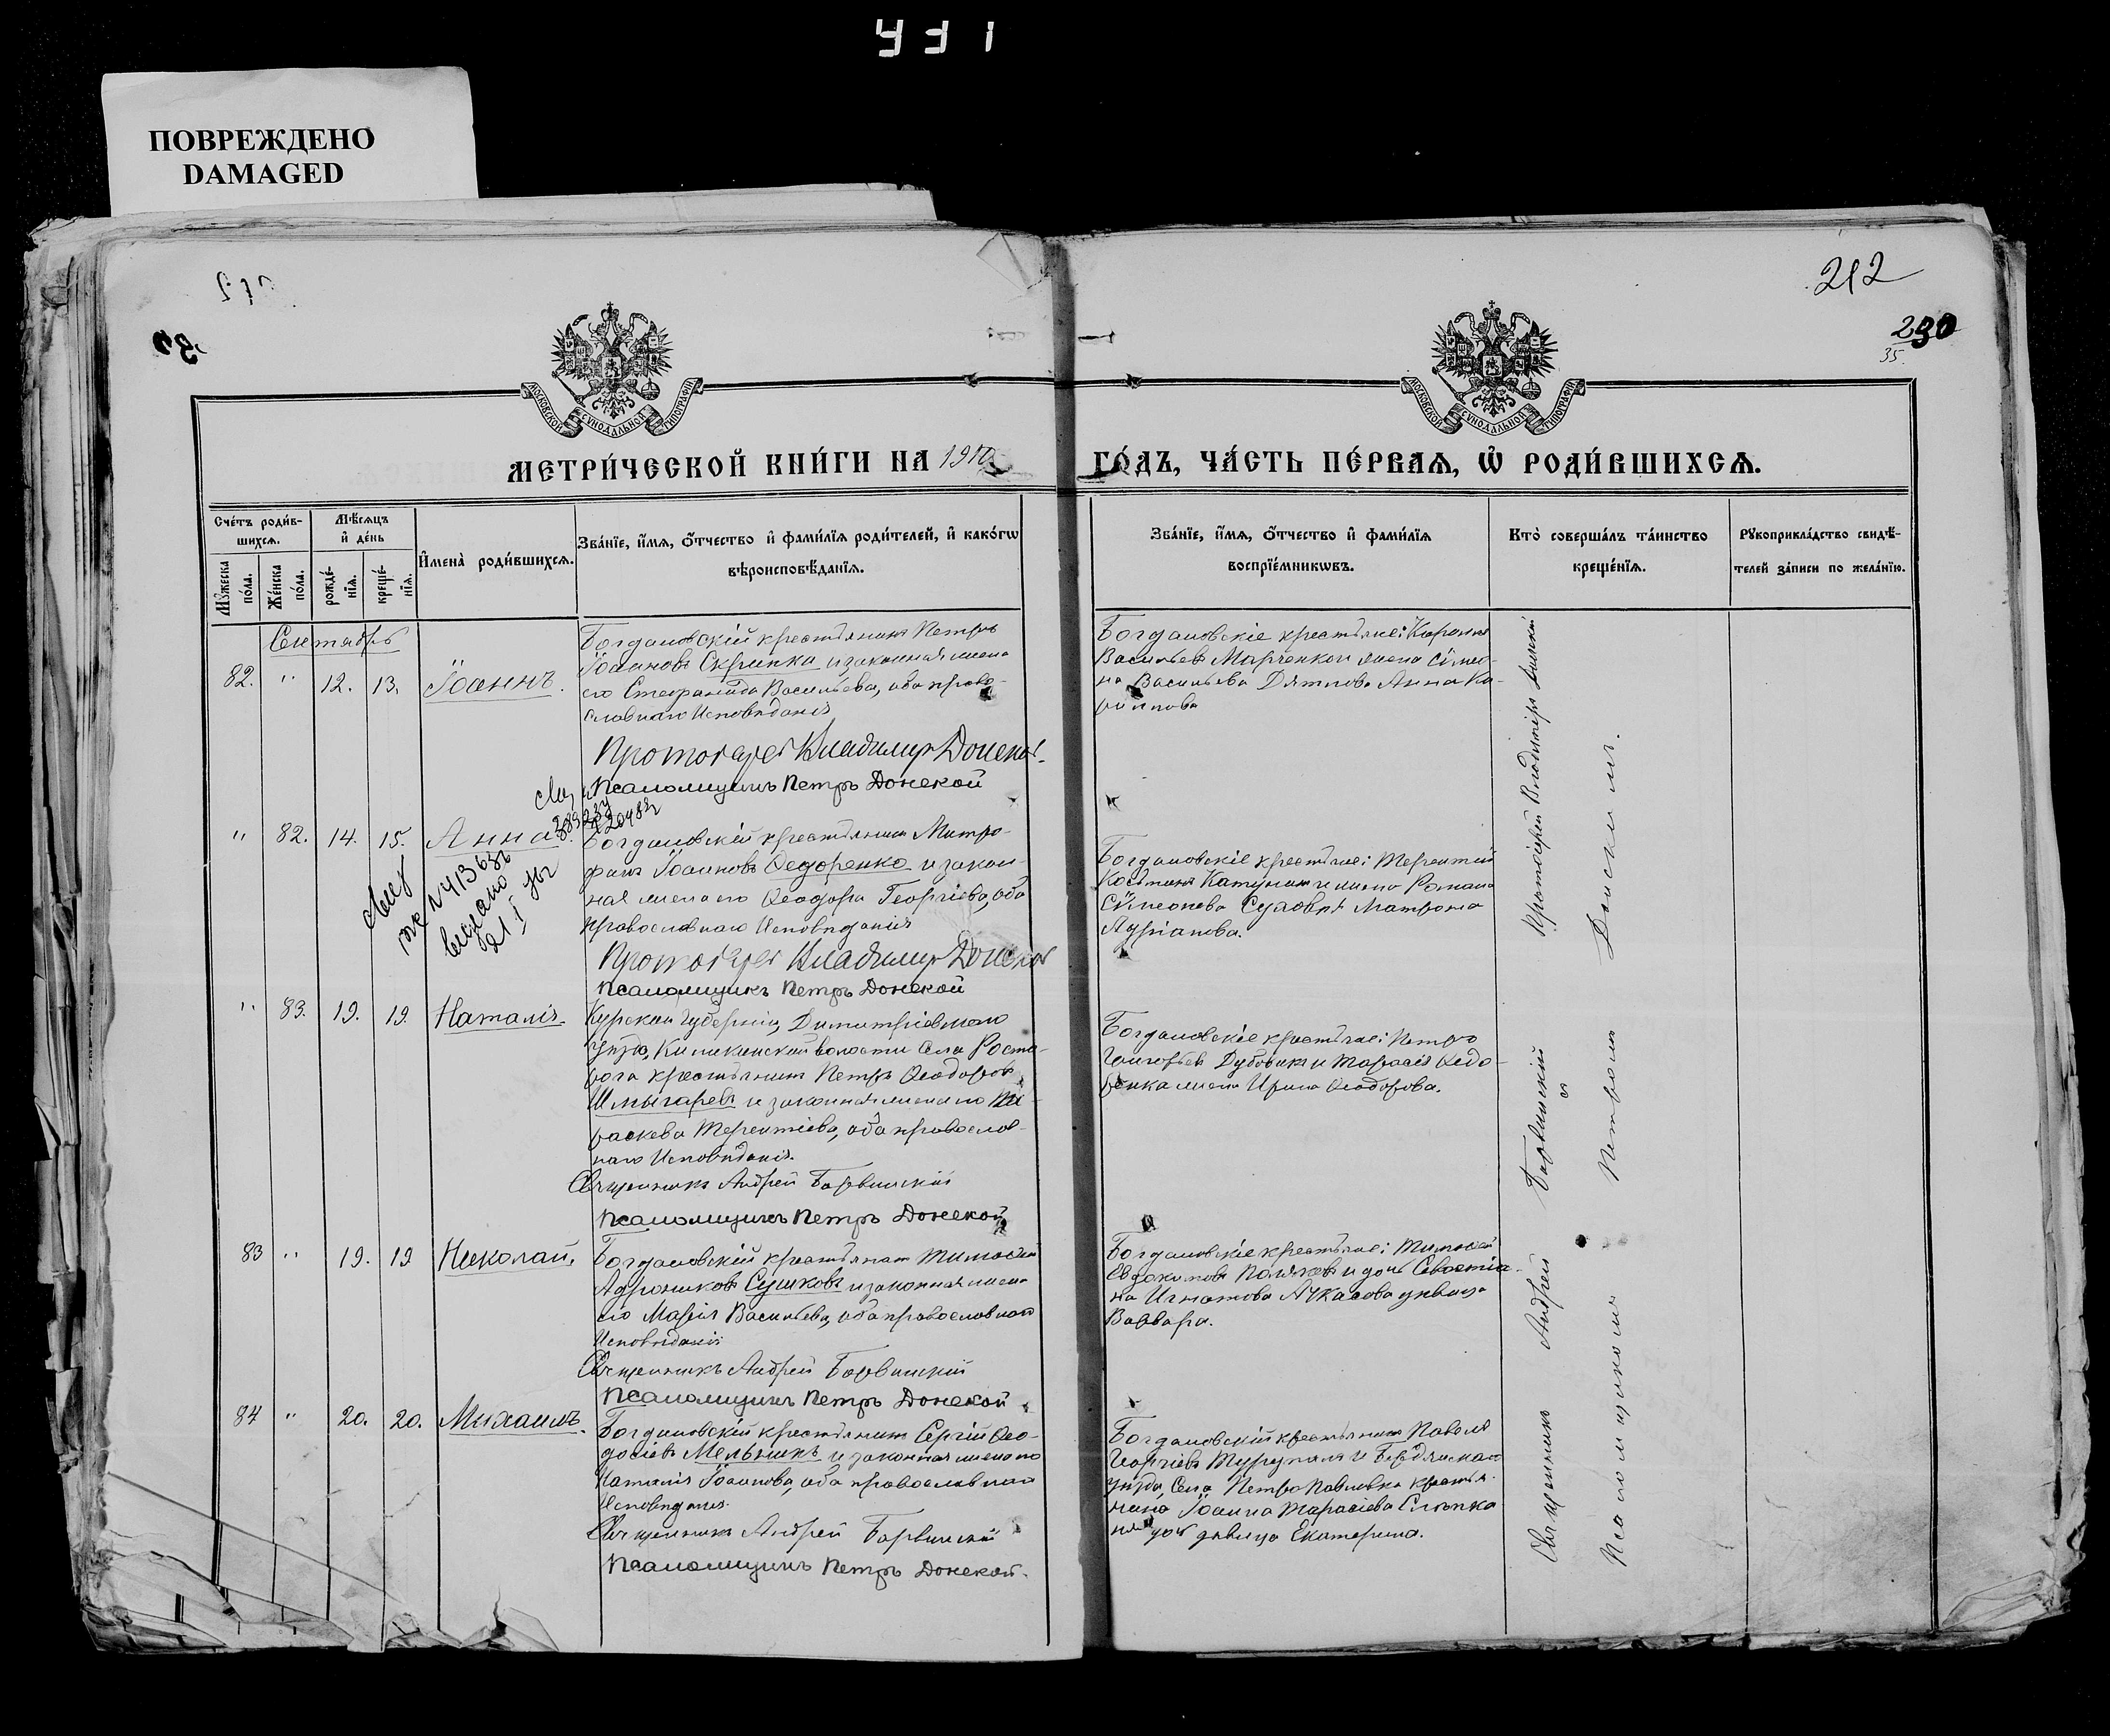 ПОВРЕЖДЕНО
DAMAGED
212
230
35.
МОСКОВСКОЙ СУНОДАЛЬНОЙ ТИПОГРАФІИ
МОСКОВСКОЙ СУНОДАЛЬНОЙ ТИПОГРАФІИ
МЕТРИ́ЧЕСКОЙ КНИ́ГИ НА 1910
ГО́ДЪ, ЧА́СТЬ ПЕ́РВАѦ, Ѡ҆ РОДИ́ВШИХСѦ.
Сче́тъ роди́в-
шихсѧ.
Мꙋ́жеска по́ла.
Же́нска по́ла.
Мѣ́сѧцъ
и҆ де́нь
рожде́-
нїѧ.
креще́-
нїѧ.
И҆мена̀ роди́вшихсѧ.
Зва́нїе, и҆́мѧ, ѻ҆́тчество и҆ фами́лїѧ роди́телей, и҆ како́гѡ
вѣроисповѣ́данїѧ.
Зва́нїе, и҆́мѧ, ѻ҆́тчество и҆ фами́лїѧ
воспрїе́мникѡвъ.
Кто̀ соверша́лъ та́инство
креще́нїѧ.
Рꙋкоприкла́дство свидѣ́-
телей за́писи по жела́нїю.
Сентябрь
82. " 12. 13. Іоаннъ.
Богдановскій крестьянинъ Петръ
Іоанновъ Скрипка и законная жена
его Стефанида Васильева, оба право-
славнаго Исповѣданія
Протоіерей Владимиръ Донской
Псаломщикъ Петръ Донской
Богдановскіе крестьяне:
Васильевъ Марченко и жена Симео-
на Васильева Дятлова Анна Ка-
" 82. 14. 15. Анна.
Богдановскій крестьянинъ Митро-
фанъ Іоанновъ Ѳедоренко и закон-
ная жена его Ѳеодора Георгіева, оба
православнаго Исповѣданія
Протоіерей Владимиръ Донской
Псаломщикъ Петръ Донской
Богдановскіе крестьяне: Терентій
и жена Романа
Симеонова Матрона
Адріанова.
" 83. 19. 19. Наталія
Курской губерніи, Димитріевскаго
уѣзда, волости села
крестьянинъ Петръ Ѳеодоровъ
Шмыгаревъ и законная жена его Па-
раскева Терентіева, оба православ-
наго Исповѣданія.
Священникъ Андрей Барвинскій
Псаломщикъ Петръ Донской
Богдановскіе крестьяне: Петръ
Григорьевъ Дубовикъ и Тарасія Ѳедо-
ренка жена Ирина Ѳеодорова.
83 " 19. 19 Николай.
Богдановскій крестьянинъ Тимоѳей
Андрониковъ Сушковъ и законная жена
его Марія Васильева, оба православнаго
Исповѣданія
Священникъ Андрей Барвинскій
Псаломщикъ Петръ Донской
Богдановскіе крестьяне: Тимоѳей
Евдокимовъ Поляковъ и дочь Севастіа-
на Игнатова Ачкасова дѣвица
Варвара.
84 " 20. 20. Михаилъ.
Богдановскій крестьянинъ Сергій Ѳео-
досіевъ Мельникъ и законная жена его
Наталія Іоаннова, оба православнаго
Исповѣданія.
Священникъ Андрей Барвинскій
Псаломщикъ Петръ Донской.
Богдановскій крестьянинъ Павелъ
Георгіевъ и Бердянскаго
уѣзда, села Петро Павловки крестья-
нина Іоанна Тарасіева
дочь дѣвица Екатерина.
Протоіерей Владиміръ Донской
Священникъ Андрей Барвинскій
и
Псаломщикомъ Петромъ Донскимъ.